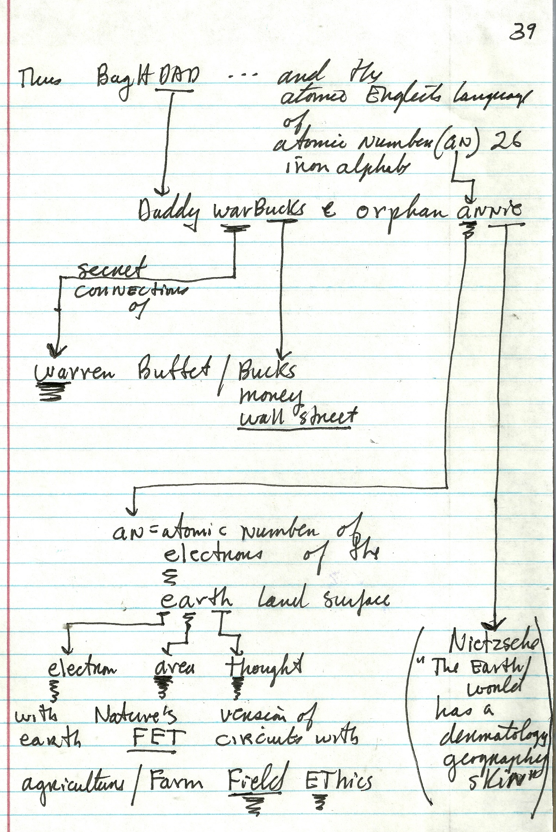 39
Thus BagHDAD ... and the
atomic English language
of
atomic number (an) 26
iron alphabet
Daddy warBucks & orphan annie
secret
connections
of
warren Buffet / Bucks
money
wall street
an = atomic number of
electrons of the
earth land surface
electron area thought
with Nature's version of
earth FET circuits with
agriculture / Farm Field EThics
(Nietzsche
"The Earth/
world
has a
dermatology
geography
skin")